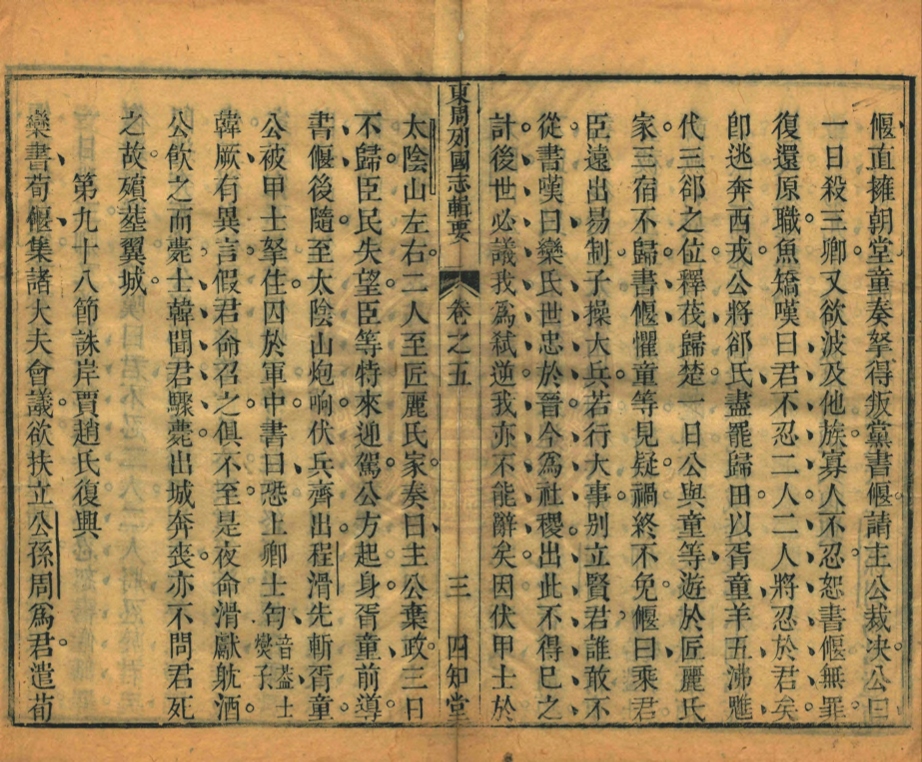 偃直擁朝堂童奏拏得叛黨書偃請主公裁决公曰
一日殺三卿又欲波及他族寡人不忍恕書偃無罪
復還原職魚矯嘆曰君不忍二人二人將忍於君矣
卽逃奔西戎公將郤氏盡罷歸田以胥童羊五沸魋
代三郤之位釋茷歸楚一日公與童等遊於匠麗氏
家三宿不歸書偃懼童等見疑禍終不免偃曰乘君
臣遠出易制子操大兵若行大事别立賢君誰敢不
從書嘆曰欒氏世忠於晉今爲社稷出此不得巳之
計後世必議我爲弑逆我亦不能辭矣因伏甲士於
東周列國志輯要 卷之五 三 四知堂
太陰山左右二人至匠麗氏家奏曰主公棄政三日
不歸臣民失望臣等特來迎駕公方起身胥童前導
書偃後隨至太陰山炮响伏兵齊出程滑先斬胥童
公被甲士拏住囚於軍中書曰恐上卿士匄音葢士爕子
韓厥有異言假君命召之俱不至是夜命滑獻躭酒
公飲之而薨士韓聞君驟薨出城奔喪亦不問君死
之故殯塟翼城
第九十八節誅岸賈趙氏復興
欒書荀偃集諸大夫會議欲扶立公孫周爲君遣荀